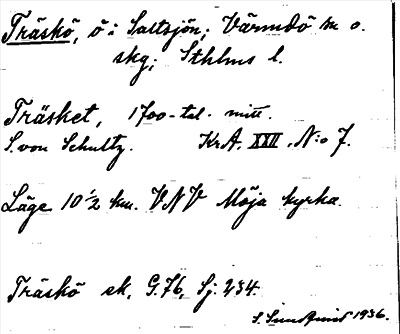 Träskö, ö i Saltsjön; Värmdö sn o.
skg; Sthlms l.
Träsket, 1700-tal. mitt.
S. von Schultz. KrA. XXII, N:o 7.
Läge 10 1/2 km. VNV Möja kyrka.
Träskö ek. G.76, Sj. 234.
S. Sundqvist 1936.